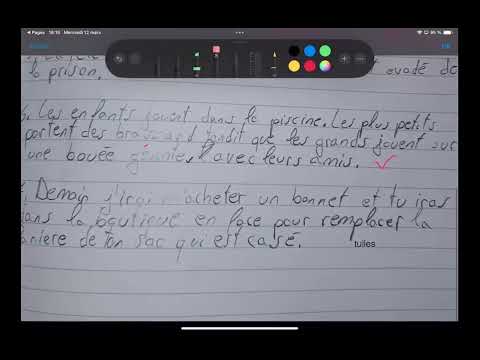 Pages 18:18 Mercredi 12 mars
la prison. évadé de
Les enfants jouent dans la piscine. Les plus petits
portent des tandit que les grands jouent sur
une bouée géante avec leurs amis.
Demain j'irai acheter un bonnet et tu iras
ans la boutique en face pour remplacer la
aniere de ton sac qui est casé. tuiles